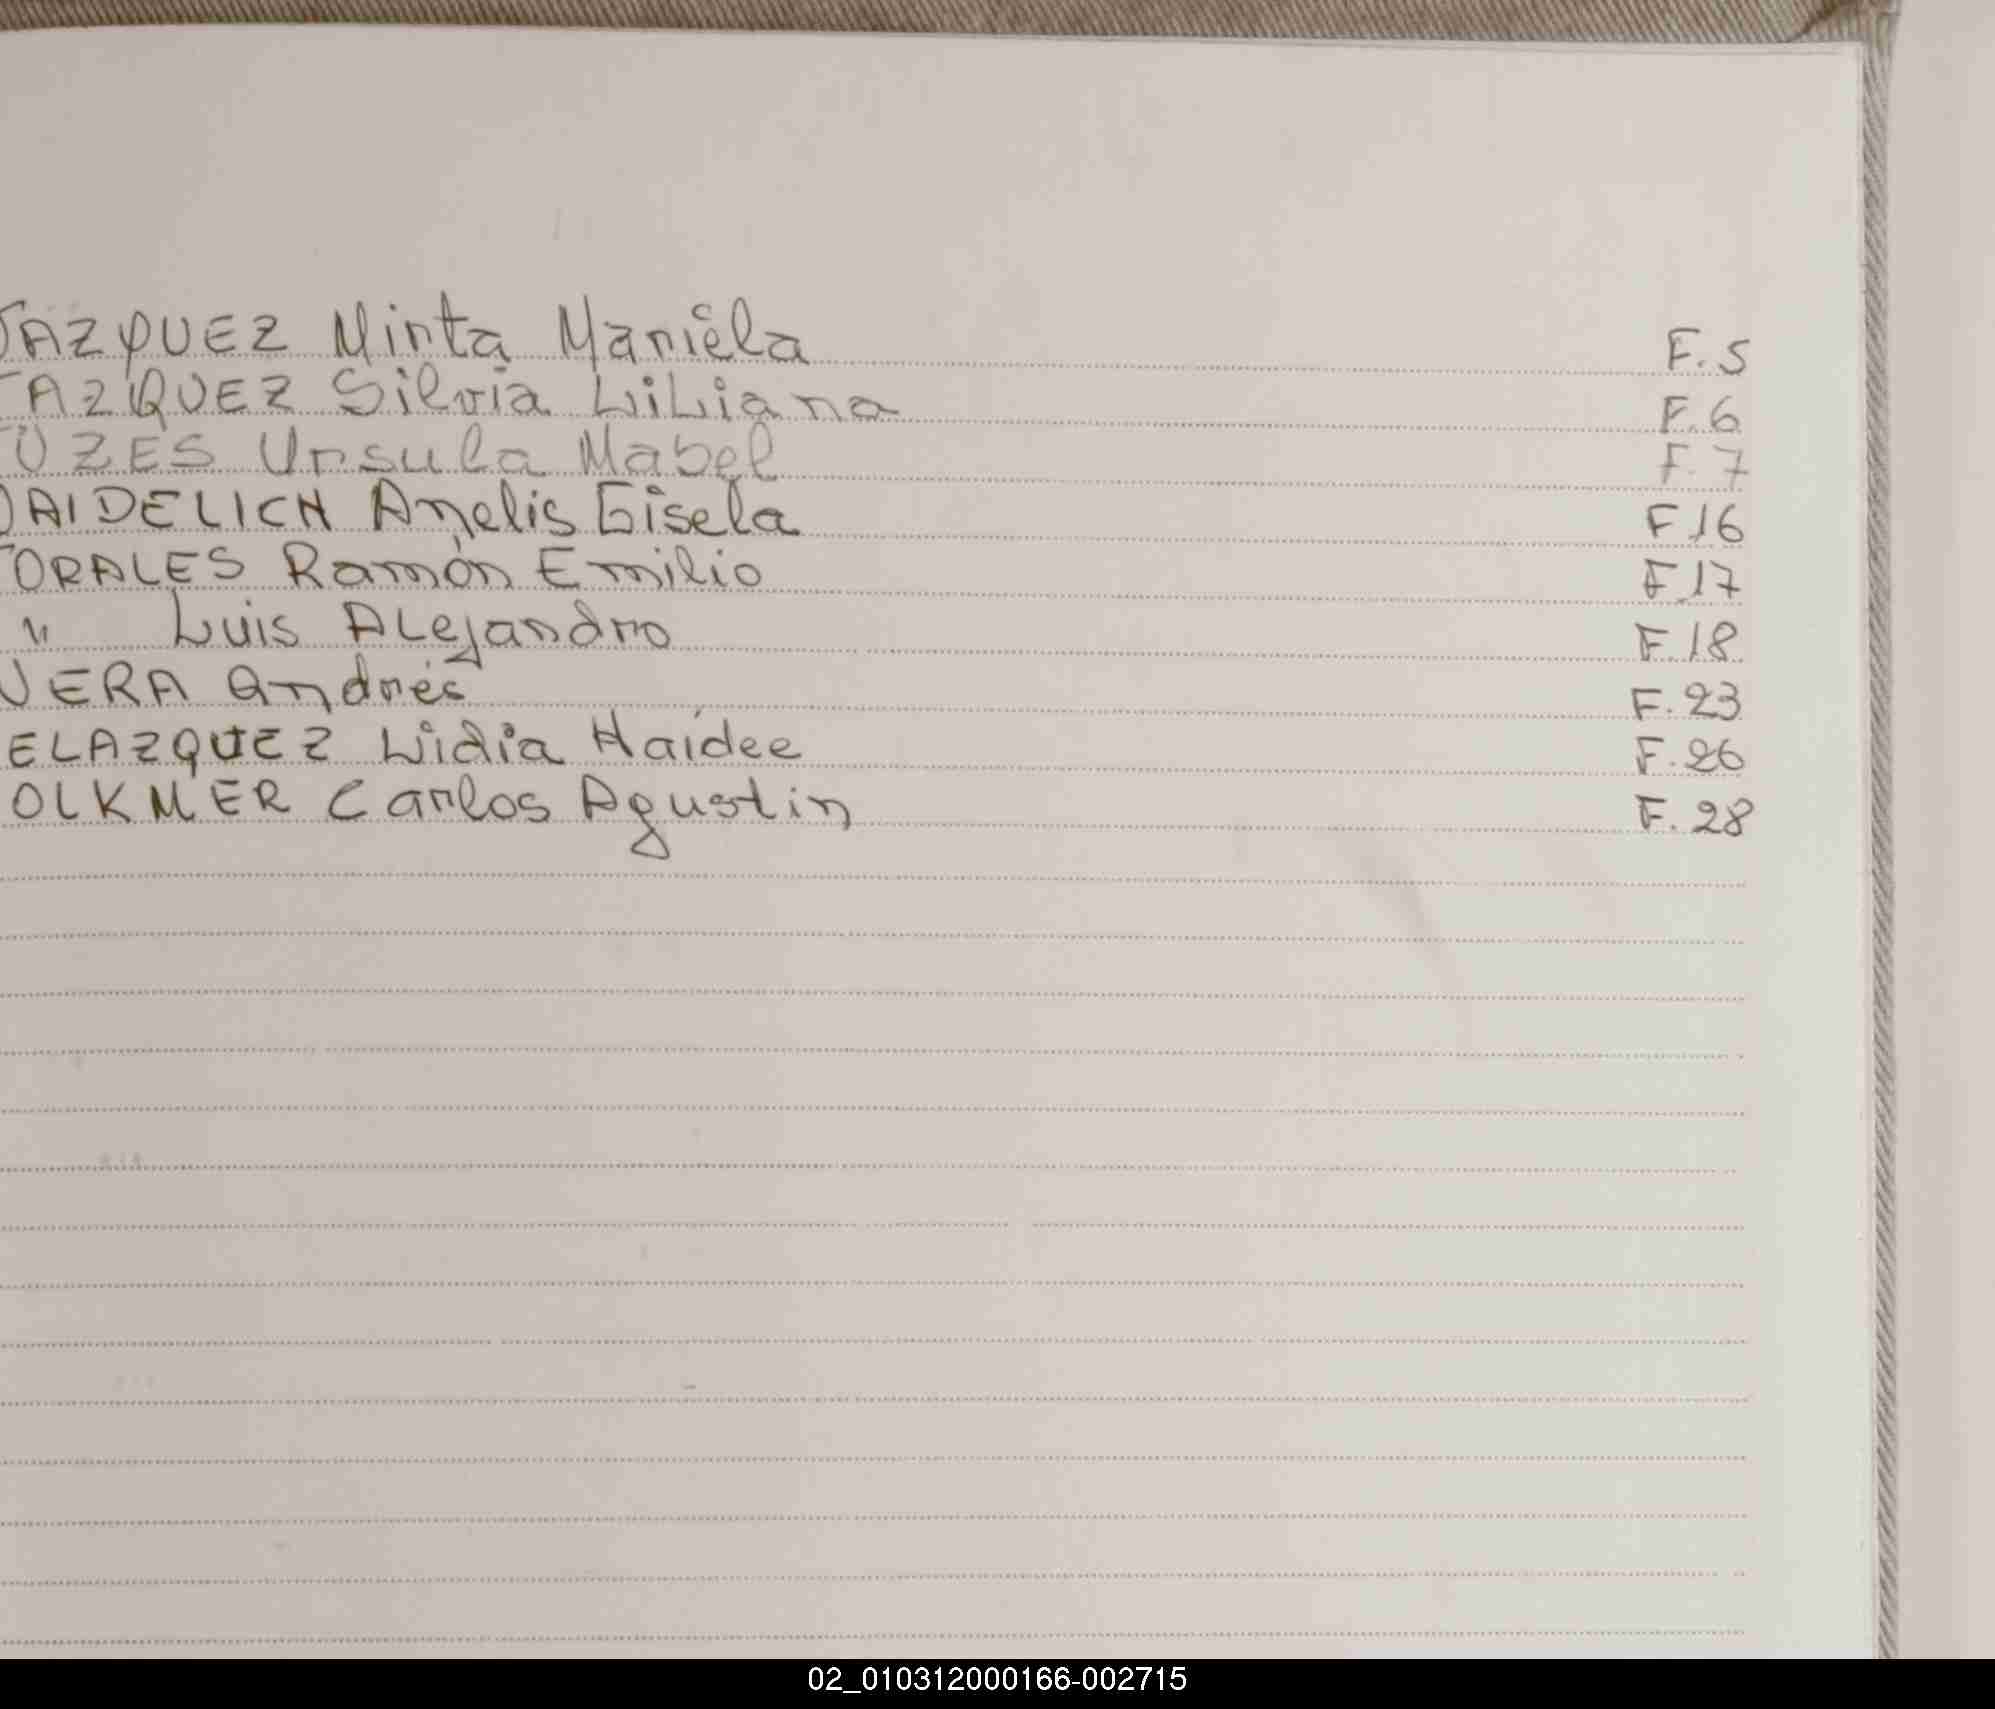 VAZQUEZ Mirta Mariela F.5
VAZQUEZ Silvia Liliana F.6
TÜZES Ursula Mabel F.7
VAIDELICH Anelis Gisela F.16
TORALES Ramón Emilio F.17
" Luis Alejandro F.18
VERA Andrés F.23
ELAZQUEZ Lidia Haídee F.26
OLKMER Carlos Agustin F.28
02_010312000166-002715